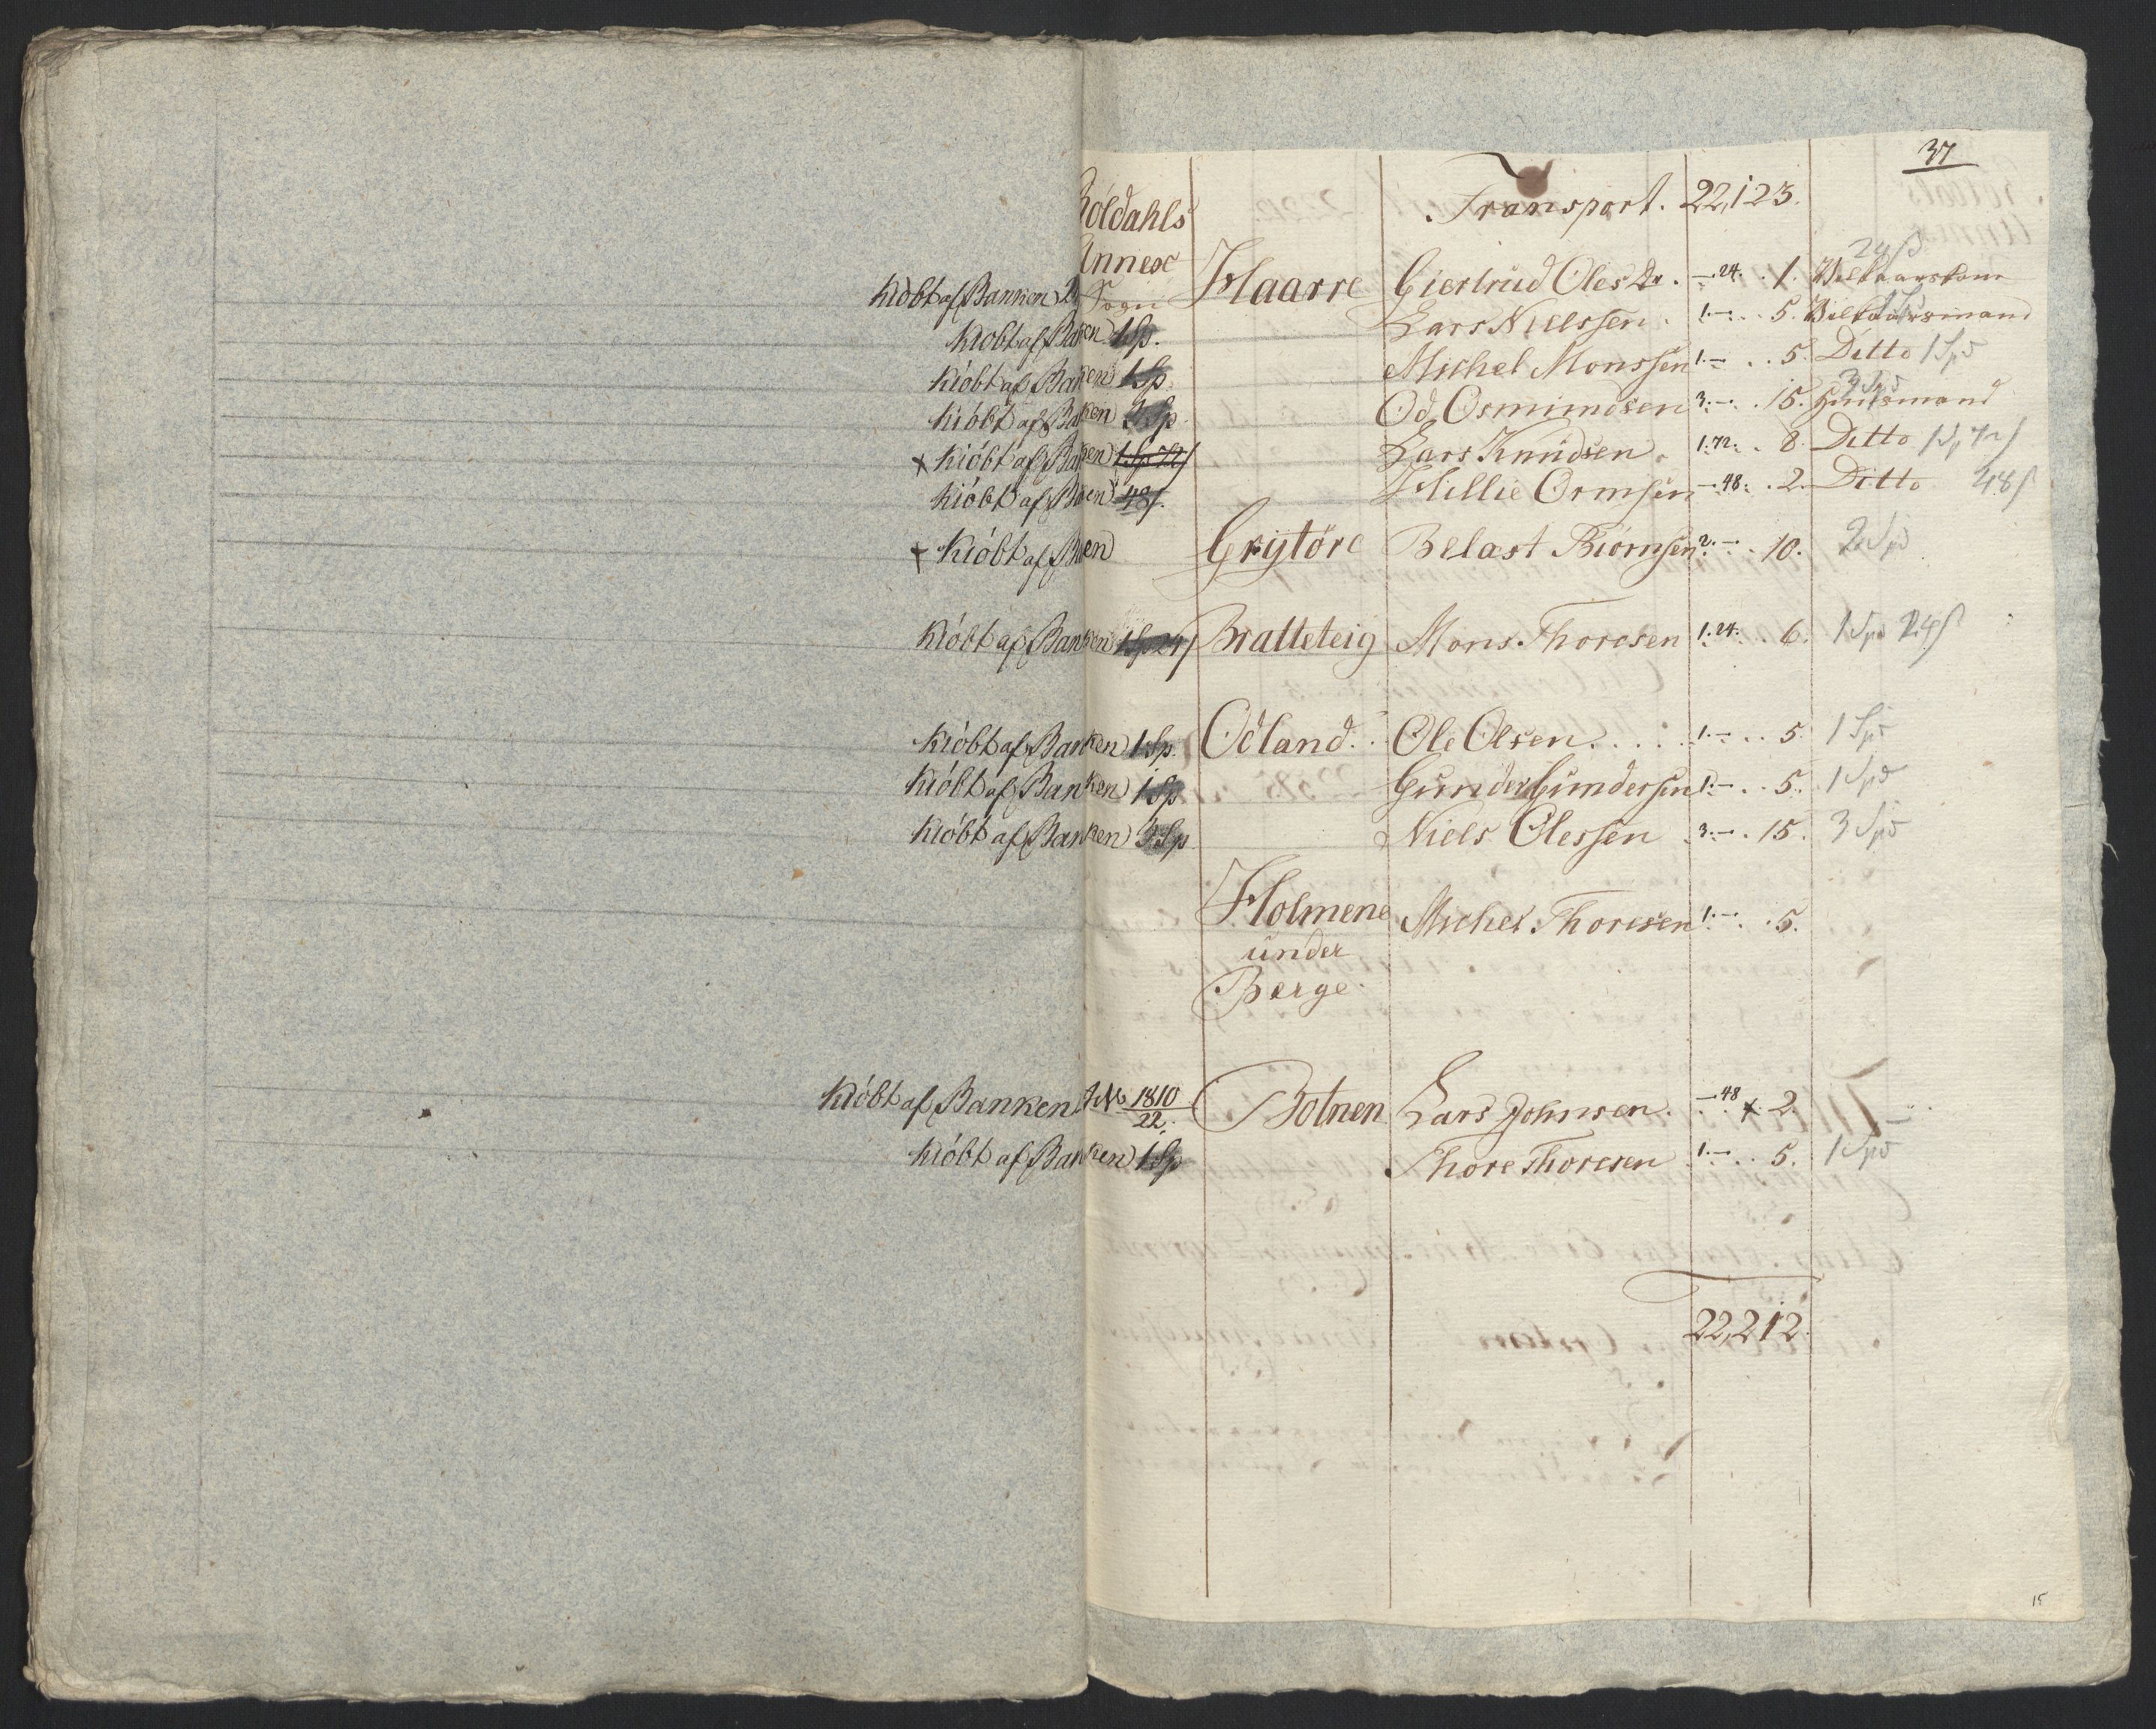 37
Röldahls Transport. 22,123.
Annex 24 ß
Kiöbt af Banken Sogn Haarre Giertrud Olesdr. —.24. . 1. Vilkaarskone
Kiöbt af Banken 1 Sp. Lars Nielssen . 1.—. . 5. Vilkaarsmand
Kiöbt af Banken 1 Sp. Michel Monssen 1.—. . 5. Ditto 1 Spd
Kiöbt af Banken 3 Sp. Od Osmundsen 3.—. . 15. Huusmand 3 Spd
x Kiöbt af Banken 1 Sp 72 ß Lars Knudsen. 1.72. . 8. Ditto 1 Sp 72 ß
Kiöbt af Banken 48 ß. Hillie Ormsen —.48. . 2. Ditto 48 ß
x Kiöbt af Banken Grytöre Belast Biörnsen 2.—. . 10. 2 Spd
Kiöbt af Banken 1 Sp 24 ß Bratteteig Mons Thoresen 1.24. . 6. 1 Spd 24 ß
Kiöbt af Banken 1 Sp. Odland. . Ole Olsen . . . . . 1.—. . 5. 1 Spd
Kiöbt af Banken 1 Sp Gunder Gundersen 1.—. . 5. 1 Spd
Kiöbt af Banken 3 Sp. Niels Olessen 3.—. . 15. 3 Spd
Holmene Michel Thoresen 1.—. . 5.
under
Berge.
Kiöbt af Banken No 1810/22. Botnen Lars Johnsen. —.48 x 2.
Kiöbt af Banken 1 Sp Thore Thoresen 1.—. . 5. 1 Spd
22,212.
15